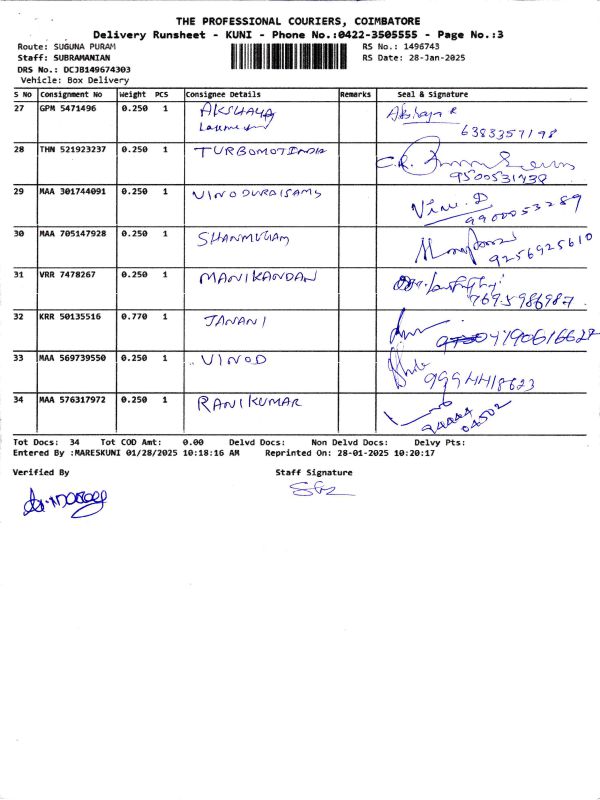 THE PROFESSIONAL COURIERS, COIMBATORE
Delivery Runsheet - KUNI - Phone No.:0422-3505555 - Page No.:3
Route: SUGUNA PURAM RS No.: 1496743
Staff: SUBRAMANIAN RS Date: 28-Jan-2025
DRS No.: DCJB149674303
Vehicle: Box Delivery
S No Consignment No Weight PCS Consignee Details Remarks Seal & Signature
27 GPM 5471496 0.250 1 AKSHAYA
6383357198
28 THN 521923237 0.250 1 TURBOMOTINDIA
9500531938
29 MAA 301744091 0.250 1 VINODURAISAMY
9900053289
30 MAA 705147928 0.250 1 SHANMUGAM
9256925610
31 VRR 7478267 0.250 1 MANIKANDAN
7695986987
32 KRR 50135516 0.770 1 JANANI
33 MAA 569739550 0.250 1 VINOD
34 MAA 576317972 0.250 1 RANIKUMAR
94444
04502
Tot Docs: 34 Tot COD Amt: 0.00 Delvd Docs: Non Delvd Docs: Delvy Pts:
Entered By :MARESKUNI 01/28/2025 10:18:16 AM Reprinted On: 28-01-2025 10:20:17
Verified By Staff Signature